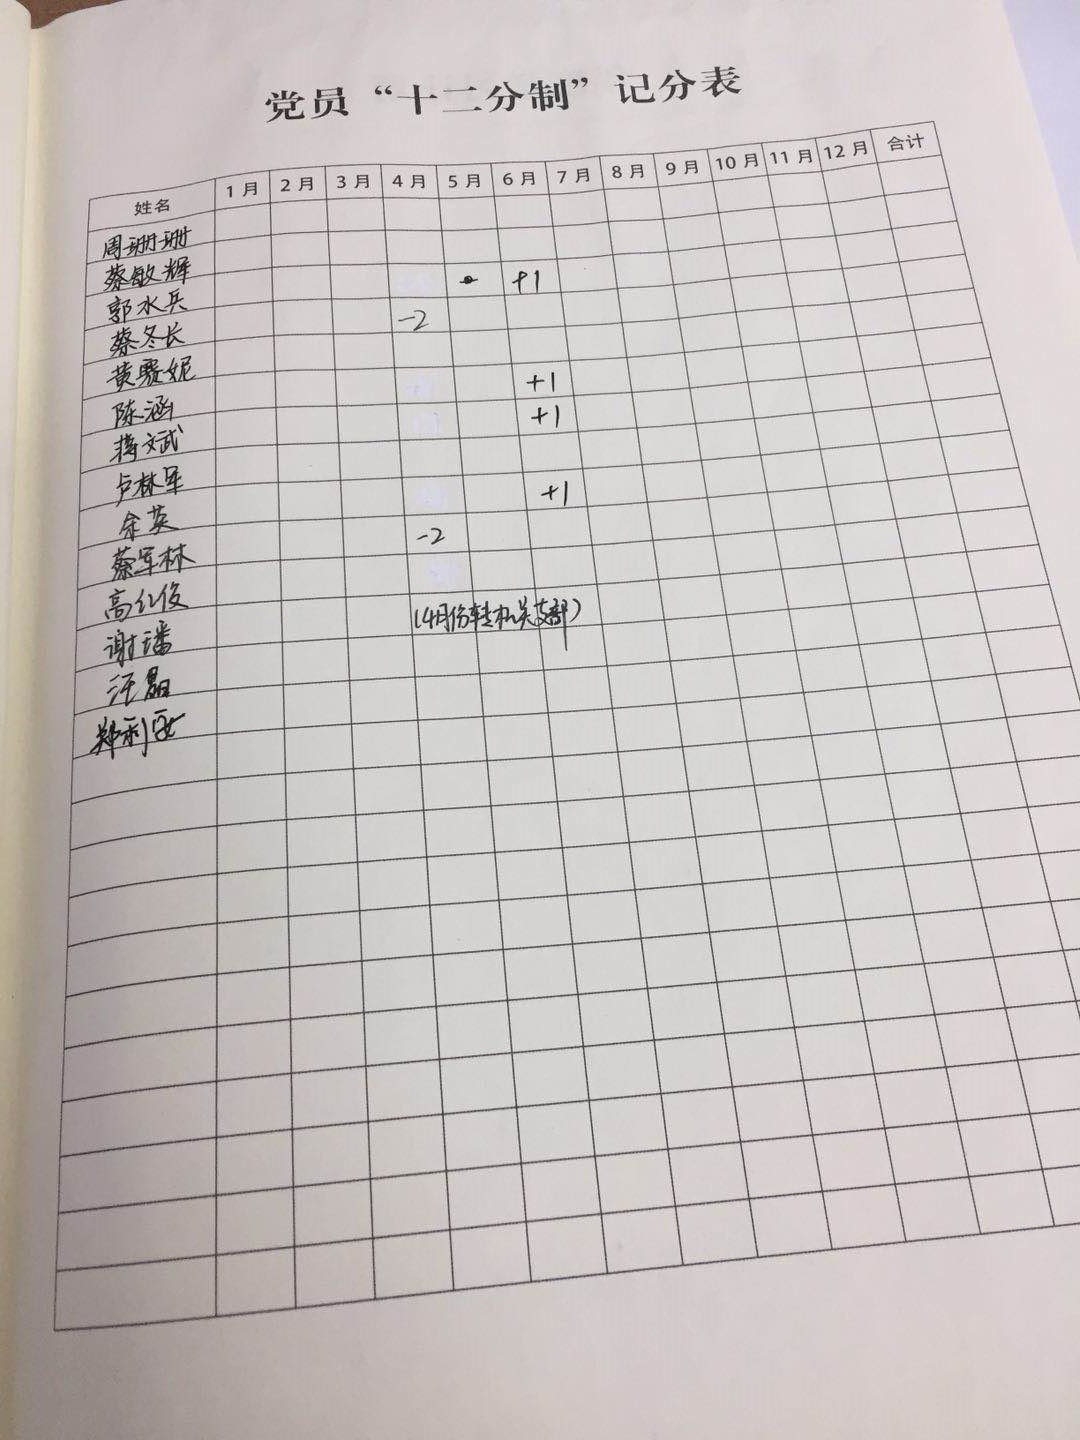 党员“十二分制”记分表
姓名 1月 2月 3月 4月 5月 6月 7月 8月 9月 10月 11月 12月 合计
周珊珊
蔡敏辉
郭水兵 +1
蔡冬长 -2
陈涵 +1
蒋文武 +1
卢林军
余英 +1
蔡军林 -2
高红俊
谢璠 (4月份转机关支部)
汪磊
郑利